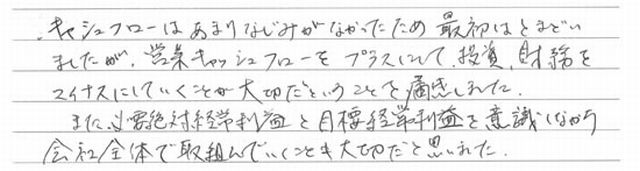 キャシュフローはあまりなじみがなかったため最初はとまどい
ましたが、営業キャッシュフローをプラスにして、投資、財務を
マイナスにしていくことが大切だということを痛感しました。
また、必要絶対経常利益と目標経常利益を意識しながら
会社全体で取組んでいくことも大切だと思いました。